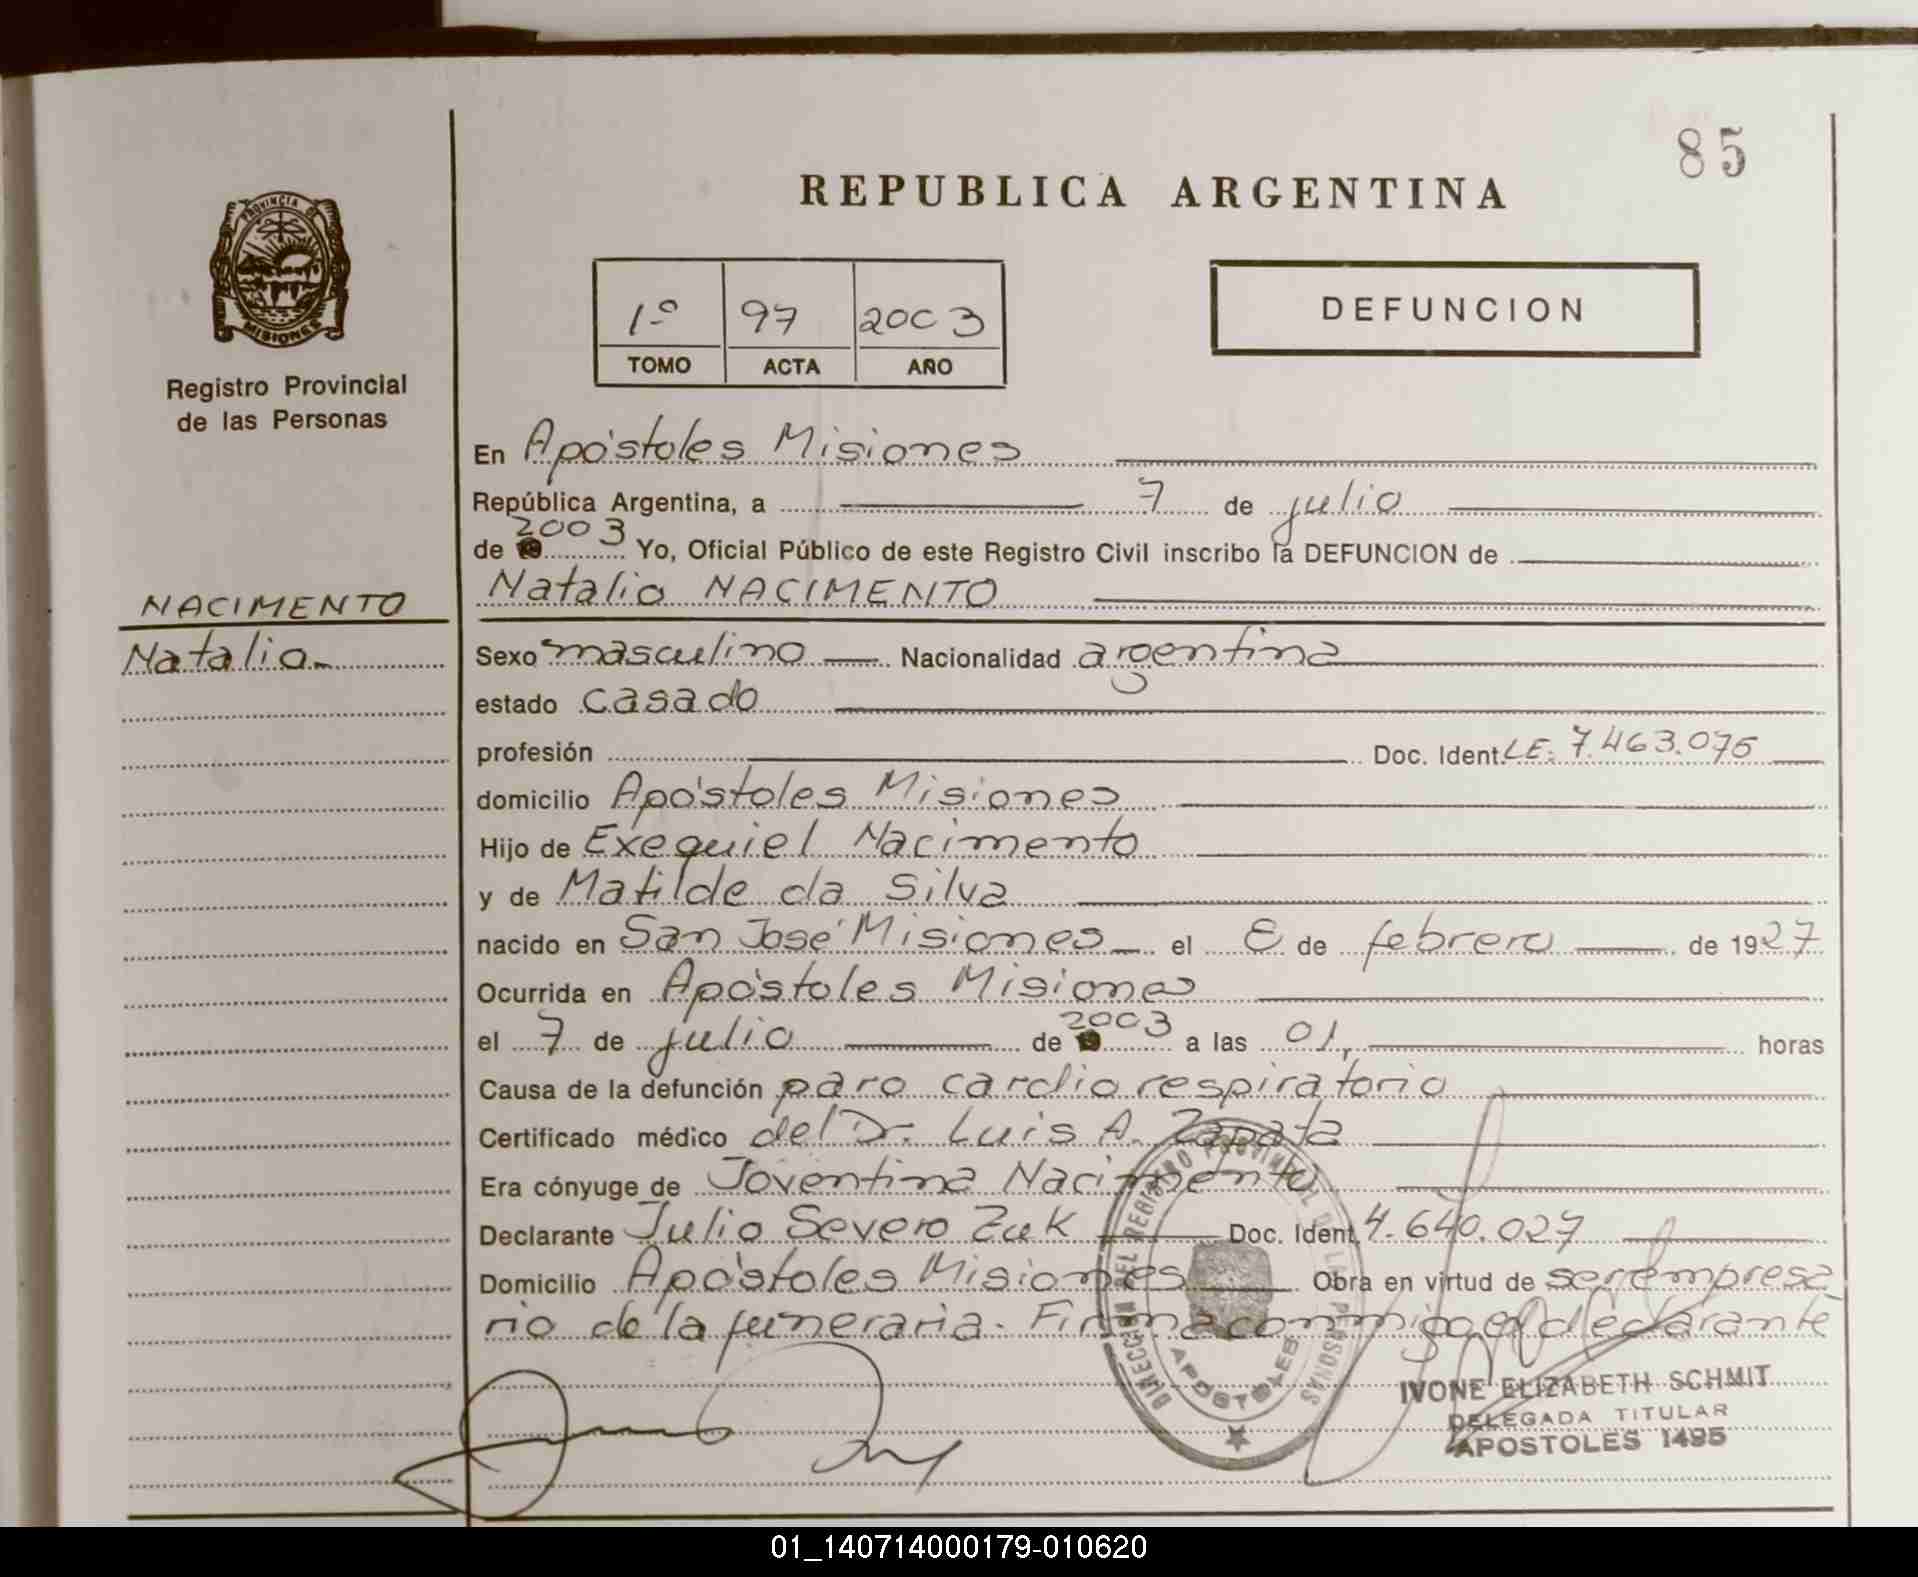 85
REPUBLICA ARGENTINA
PROVINCIA DE
MISIONES
Registro Provincial
de las Personas
1º 97 2003
TOMO ACTA AÑO
DEFUNCION
En Apóstoles Misiones
República Argentina, a 7 de julio
de 2003 Yo, Oficial Público de este Registro Civil inscribo la DEFUNCION de
Natalio NACIMENTO
NACIMENTO
Natalio
Sexo masculino Nacionalidad argentina
estado casado
profesión Doc. Ident. LE. 7.463.075
domicilio Apóstoles Misiones
Hijo de Exequiel Nacimento
y de Matilde da Silva
nacido en San José Misiones el 8 de febrero de 1927
Ocurrida en Apóstoles Misiones
el 7 de julio de 2003 a las 01, horas
Causa de la defunción paro cardio respiratorio
Certificado médico del Dr. Luis A. Zapata
Era cónyuge de Joventina Nacimento
Declarante Julio Severo Zuk Doc. Ident. 4.640.027
Domicilio Apóstoles Misiones Obra en virtud de ser empresa
rio de la funeraria. Firma conmigo el declarante
DIRECCION DEL REGISTRO PROVINCIAL DE LAS PERSONAS
APOSTOLES
IVONE ELIZABETH SCHMIT
DELEGADA TITULAR
APOSTOLES 1495
01_140714000179-010620